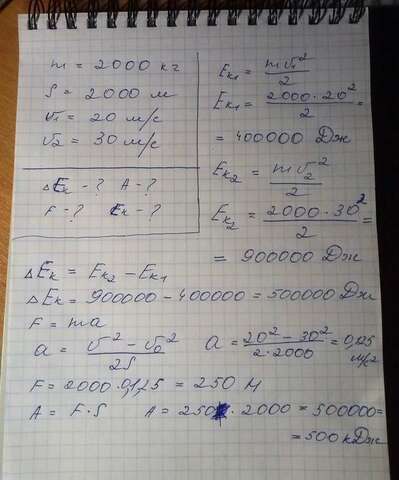 m = 2000 кг
S = 2000 м
v₁ = 20 м/с
v₂ = 30 м/с
ΔEₖ - ? A - ?
F - ? Eₖ - ?
Eₖ₁ = mv₁²/2
Eₖ₁ = 2000·20²/2 =
= 400000 Дж
Eₖ₂ = mv₂²/2
Eₖ₂ = 2000·30²/2 =
= 900000 Дж
ΔEₖ = Eₖ₂ - Eₖ₁
ΔEₖ = 900000 - 400000 = 500000 Дж
F = ma
a = v² - v₀²/2S a = 20² - 30²/2·2000 = 0,125 м/с²
F = 2000·0,125 = 250 Н
A = F·S A = 250·2000 = 500000 =
= 500 кДж